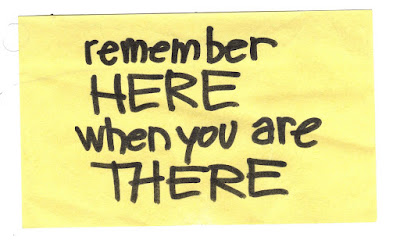 remember
HERE
when you are
THERE